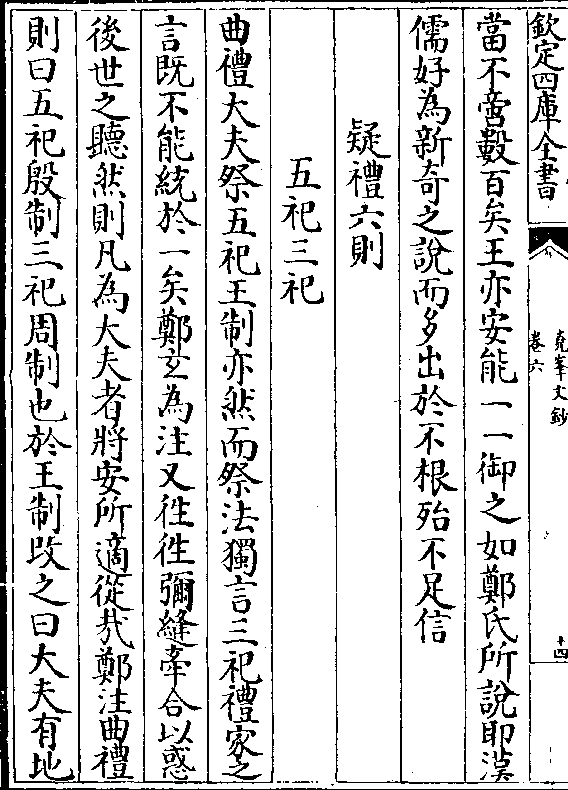 欽定四庫全書
堯峯文鈔
卷六
十四
當不啻數百矣王亦安能一一御之如鄭氏所說即漢
儒好為新奇之說而多出於不根殆不足信
疑禮六則
五祀三祀
曲禮大夫祭五祀王制亦然而祭法獨言三祀禮家之
言既不能統於一矣鄭玄為注又徃徃彌縫牽合以惑
後世之聽然則凡為大夫者將安所適從㢤鄭注曲禮
則曰五祀殷制三祀周制也於王制改之曰大夫有地